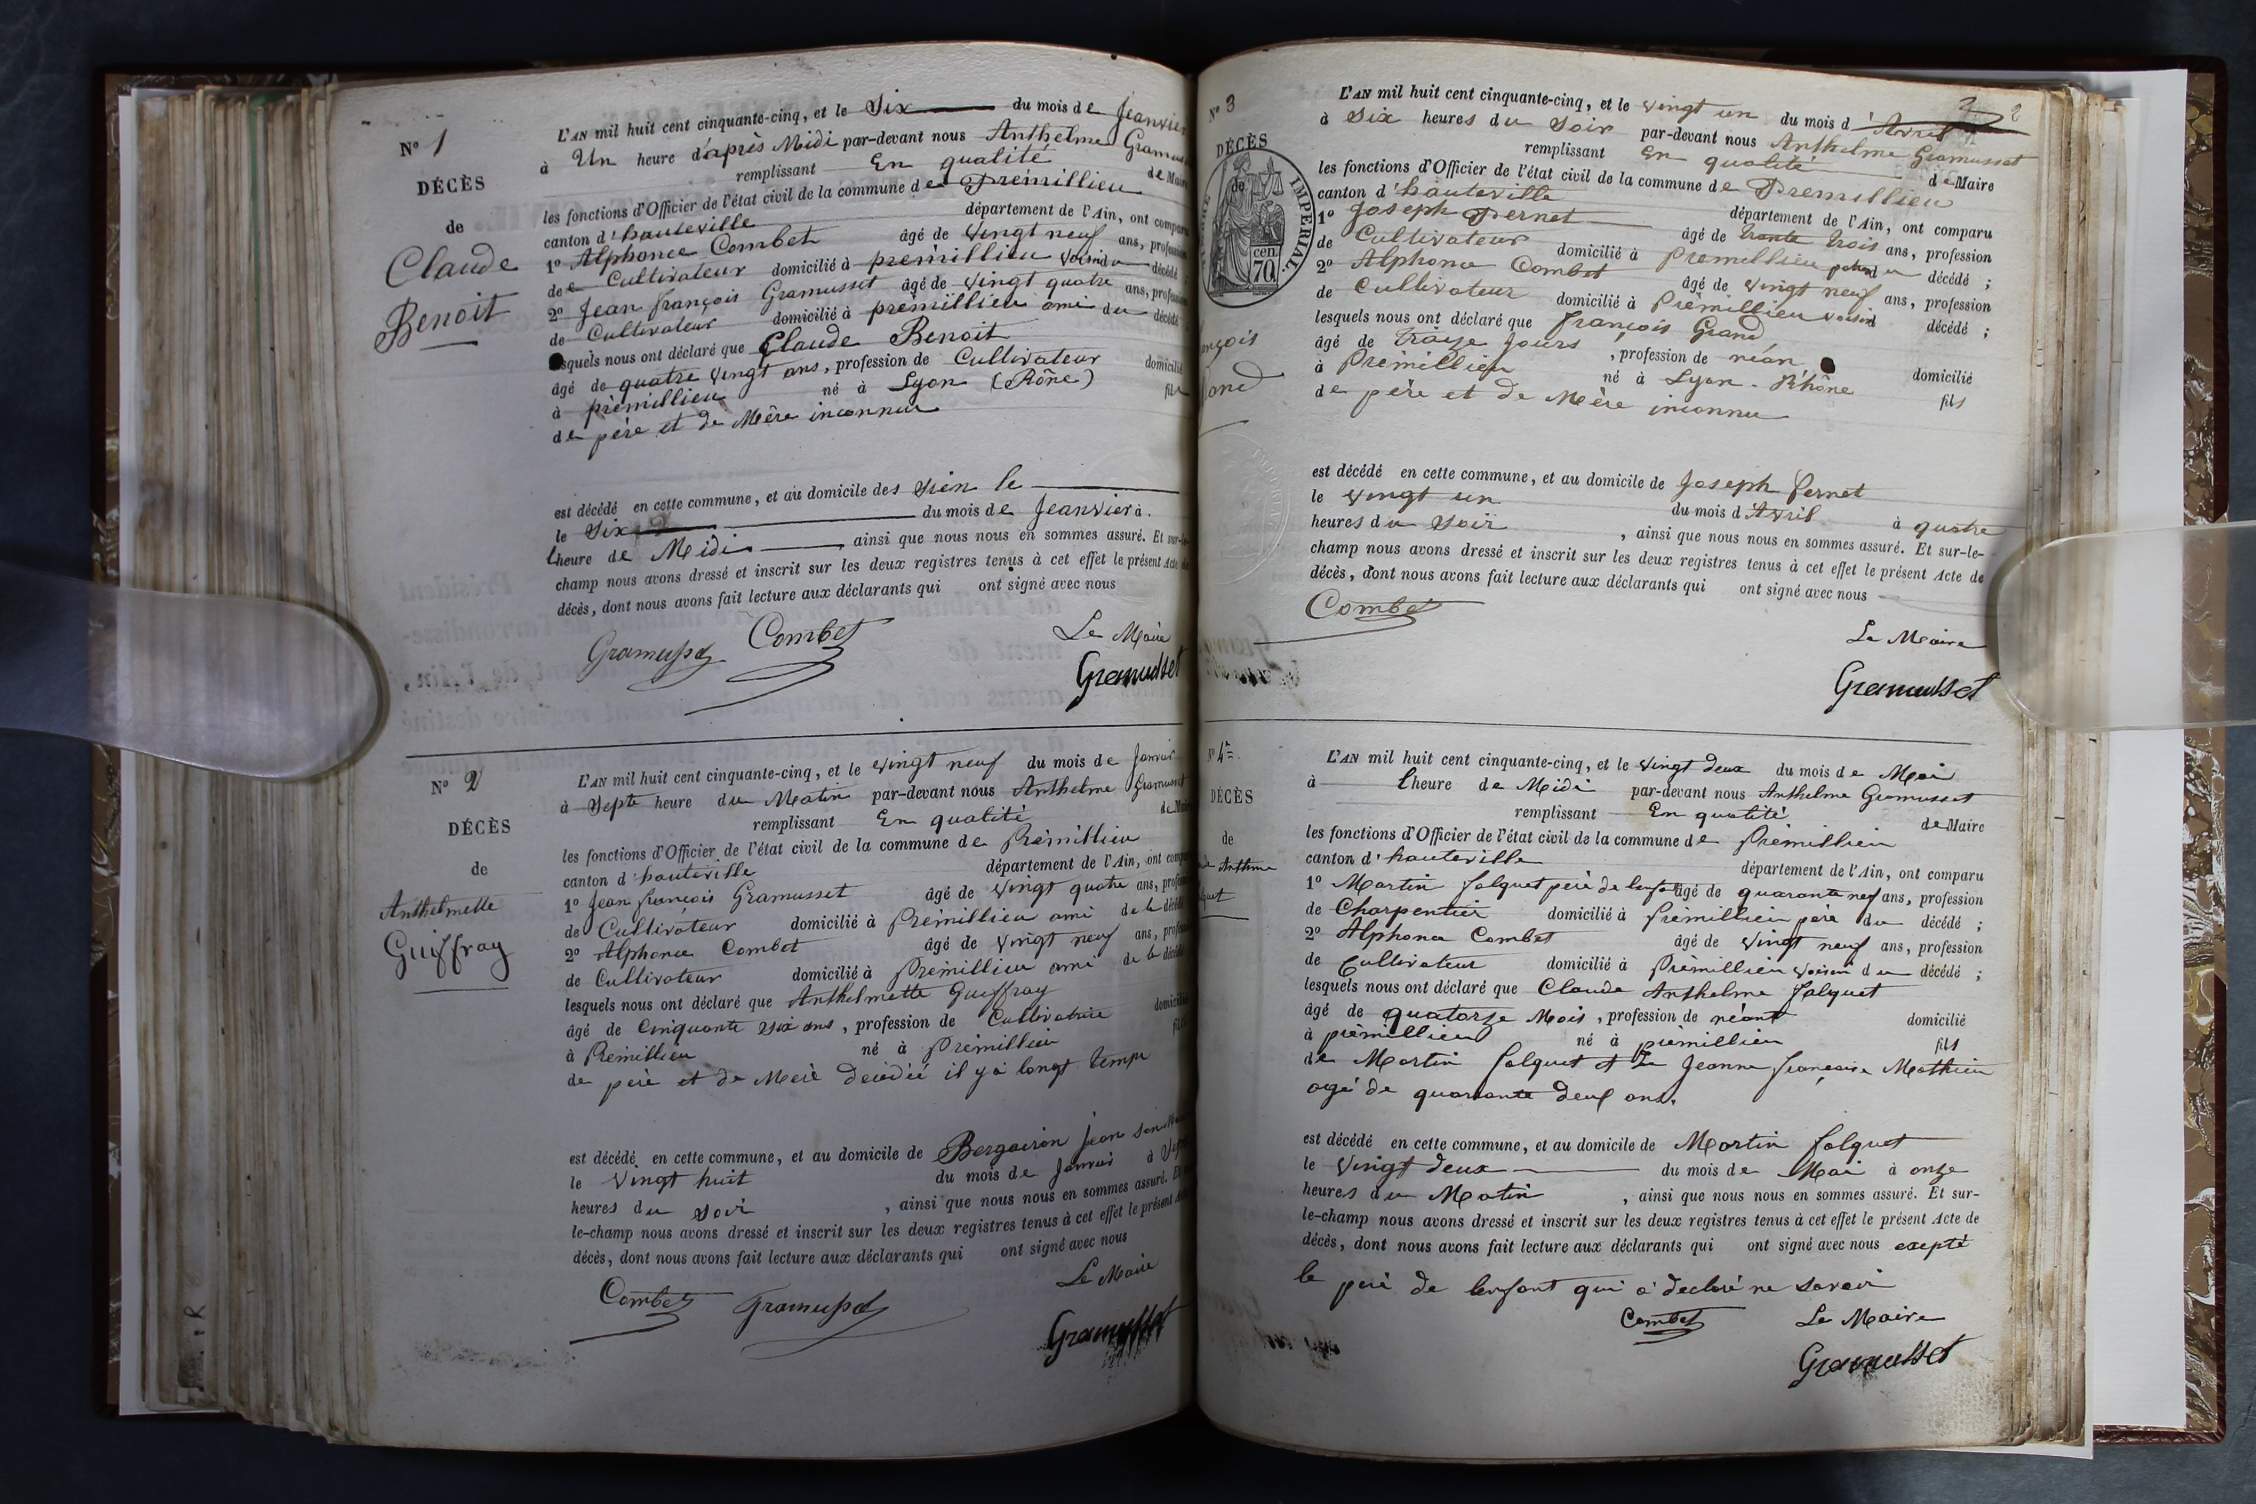 Nº 1
DÉCÈS
de
Claude
Benoit
L'AN mil huit cent cinquante-cinq, et le Six du mois de Jeanvier
à Un heure d'après Midi par-devant nous Anthelme
remplissant En qualité de Maire
les fonctions d'Officier de l'état civil de la commune de Prémillieu
canton d'hauteville département de l'Ain, ont comparu
1º Alphonce Combet âgé de vingt neuf ans, profession
de Cultivateur domicilié à prémillieu voisin du décédé
2º Jean françois Gramusset âgé de vingt quatre ans, profession
de Cultivateur domicilié à prémillieu ami du décédé
lesquels nous ont déclaré que Claude Benoit
âgé de quatre vingt ans, profession de Cultivateur domicilié
à prémillieu né à Lyon (Rône) fils
de père et de Mère inconnu
est décédé en cette commune, et au domicile des sien le
le Six du mois de Jeanvier à
lheure de Midi, ainsi que nous nous en sommes assuré. Et sur-le-
champ nous avons dressé et inscrit sur les deux registres tenus à cet effet le présent Acte de
décès, dont nous avons fait lecture aux déclarants qui ont signé avec nous
Gramusset Combet Le Maire
Gramusset
Nº 2
DÉCÈS
de
Anthelmette
Guiffray
L'AN mil huit cent cinquante-cinq, et le vingt neuf du mois de Janvier
à Septe heure du Matin par-devant nous Anthelme Gramusset
remplissant En qualité de Maire
les fonctions d'Officier de l'état civil de la commune de Prémillieu
canton d'hauteville département de l'Ain, ont comparu
1º Jean françois Gramusset âgé de vingt quatre ans, profession
de Cultivateur domicilié à Prémillieu ami de la décédé
2º Alphonce Combet âgé de vingt neuf ans, profession
de Cultivateur domicilié à Prémillieu ami de la décédé
lesquels nous ont déclaré que Anthelmette Guiffray
âgé de Cinquante six ans, profession de Cultivatrice domicilié
à Prémillieu né à Prémillieu fils
de père et de Mère décédéé il y à longt temps
est décédé en cette commune, et au domicile de Bergoiron Jean son
le vingt huit du mois de Janvier à
heures du soir, ainsi que nous nous en sommes assuré. Et
le-champ nous avons dressé et inscrit sur les deux registres tenus à cet effet le présent
décès, dont nous avons fait lecture aux déclarants qui ont signé avec nous
Combet Gramusset Le Maire
Gramusset
2 2
Nº 3
DÉCÈS
de
IMPERIAL.
70 cen
L'AN mil huit cent cinquante-cinq, et le vingt un du mois d'Avril
à Six heures du Soir par-devant nous Anthelme Gramusset
remplissant En qualité de Maire
les fonctions d'Officier de l'état civil de la commune de Prémillieu
canton d'hauteville département de l'Ain, ont comparu
1º Joseph Pernet âgé de trante trois ans, profession
de Cultivateur domicilié à Prémillieu du décédé ;
2º Alphonce Combet âgé de vingt neuf ans, profession
de Cultivateur domicilié à Prémillieu voisin décédé ;
lesquels nous ont déclaré que françois Grand
âgé de traize Jours, profession de néan domicilié
à Prémillieu né à Lyon. Rhône fils
de père et de Mère inconnu
est décédé en cette commune, et au domicile de Joseph Pernet
le vingt un du mois d'Avril à quatre
heures du soir, ainsi que nous nous en sommes assuré. Et sur-le-
champ nous avons dressé et inscrit sur les deux registres tenus à cet effet le présent Acte de
décès, dont nous avons fait lecture aux déclarants qui ont signé avec nous
Combet
Le Maire
Gramusset
Nº 4
DÉCÈS
de
L'AN mil huit cent cinquante-cinq, et le vingt deux du mois de Mai
à lheure de Midi par-devant nous Anthelme Gramusset
remplissant En qualité de Maire
les fonctions d'Officier de l'état civil de la commune de Prémillieu
canton d'hauteville département de l'Ain, ont comparu
1º Martin falquet père de lenfant âgé de quarante neuf ans, profession
de Charpentier domicilié à Prémillieu père du décédé ;
2º Alphonce Combet âgé de vingt neuf ans, profession
de Cultivateur domicilié à Prémillieu voisin du décédé ;
lesquels nous ont déclaré que Claude Anthelme falquet
âgé de quatorze Mois, profession de néant domicilié
à prémillieu né à prémillieu fils
de Martin falquet et de Jeanne françoise Mathieu
agé de quarante deux ans.
est décédé en cette commune, et au domicile de Martin falquet
le vingt deux du mois de Mai à onze
heures du Matin, ainsi que nous nous en sommes assuré. Et sur-
le-champ nous avons dressé et inscrit sur les deux registres tenus à cet effet le présent Acte de
décès, dont nous avons fait lecture aux déclarants qui ont signé avec nous excepté
le père de lenfant qui à declaré ne savoir
Combet Le Maire
Gramusset